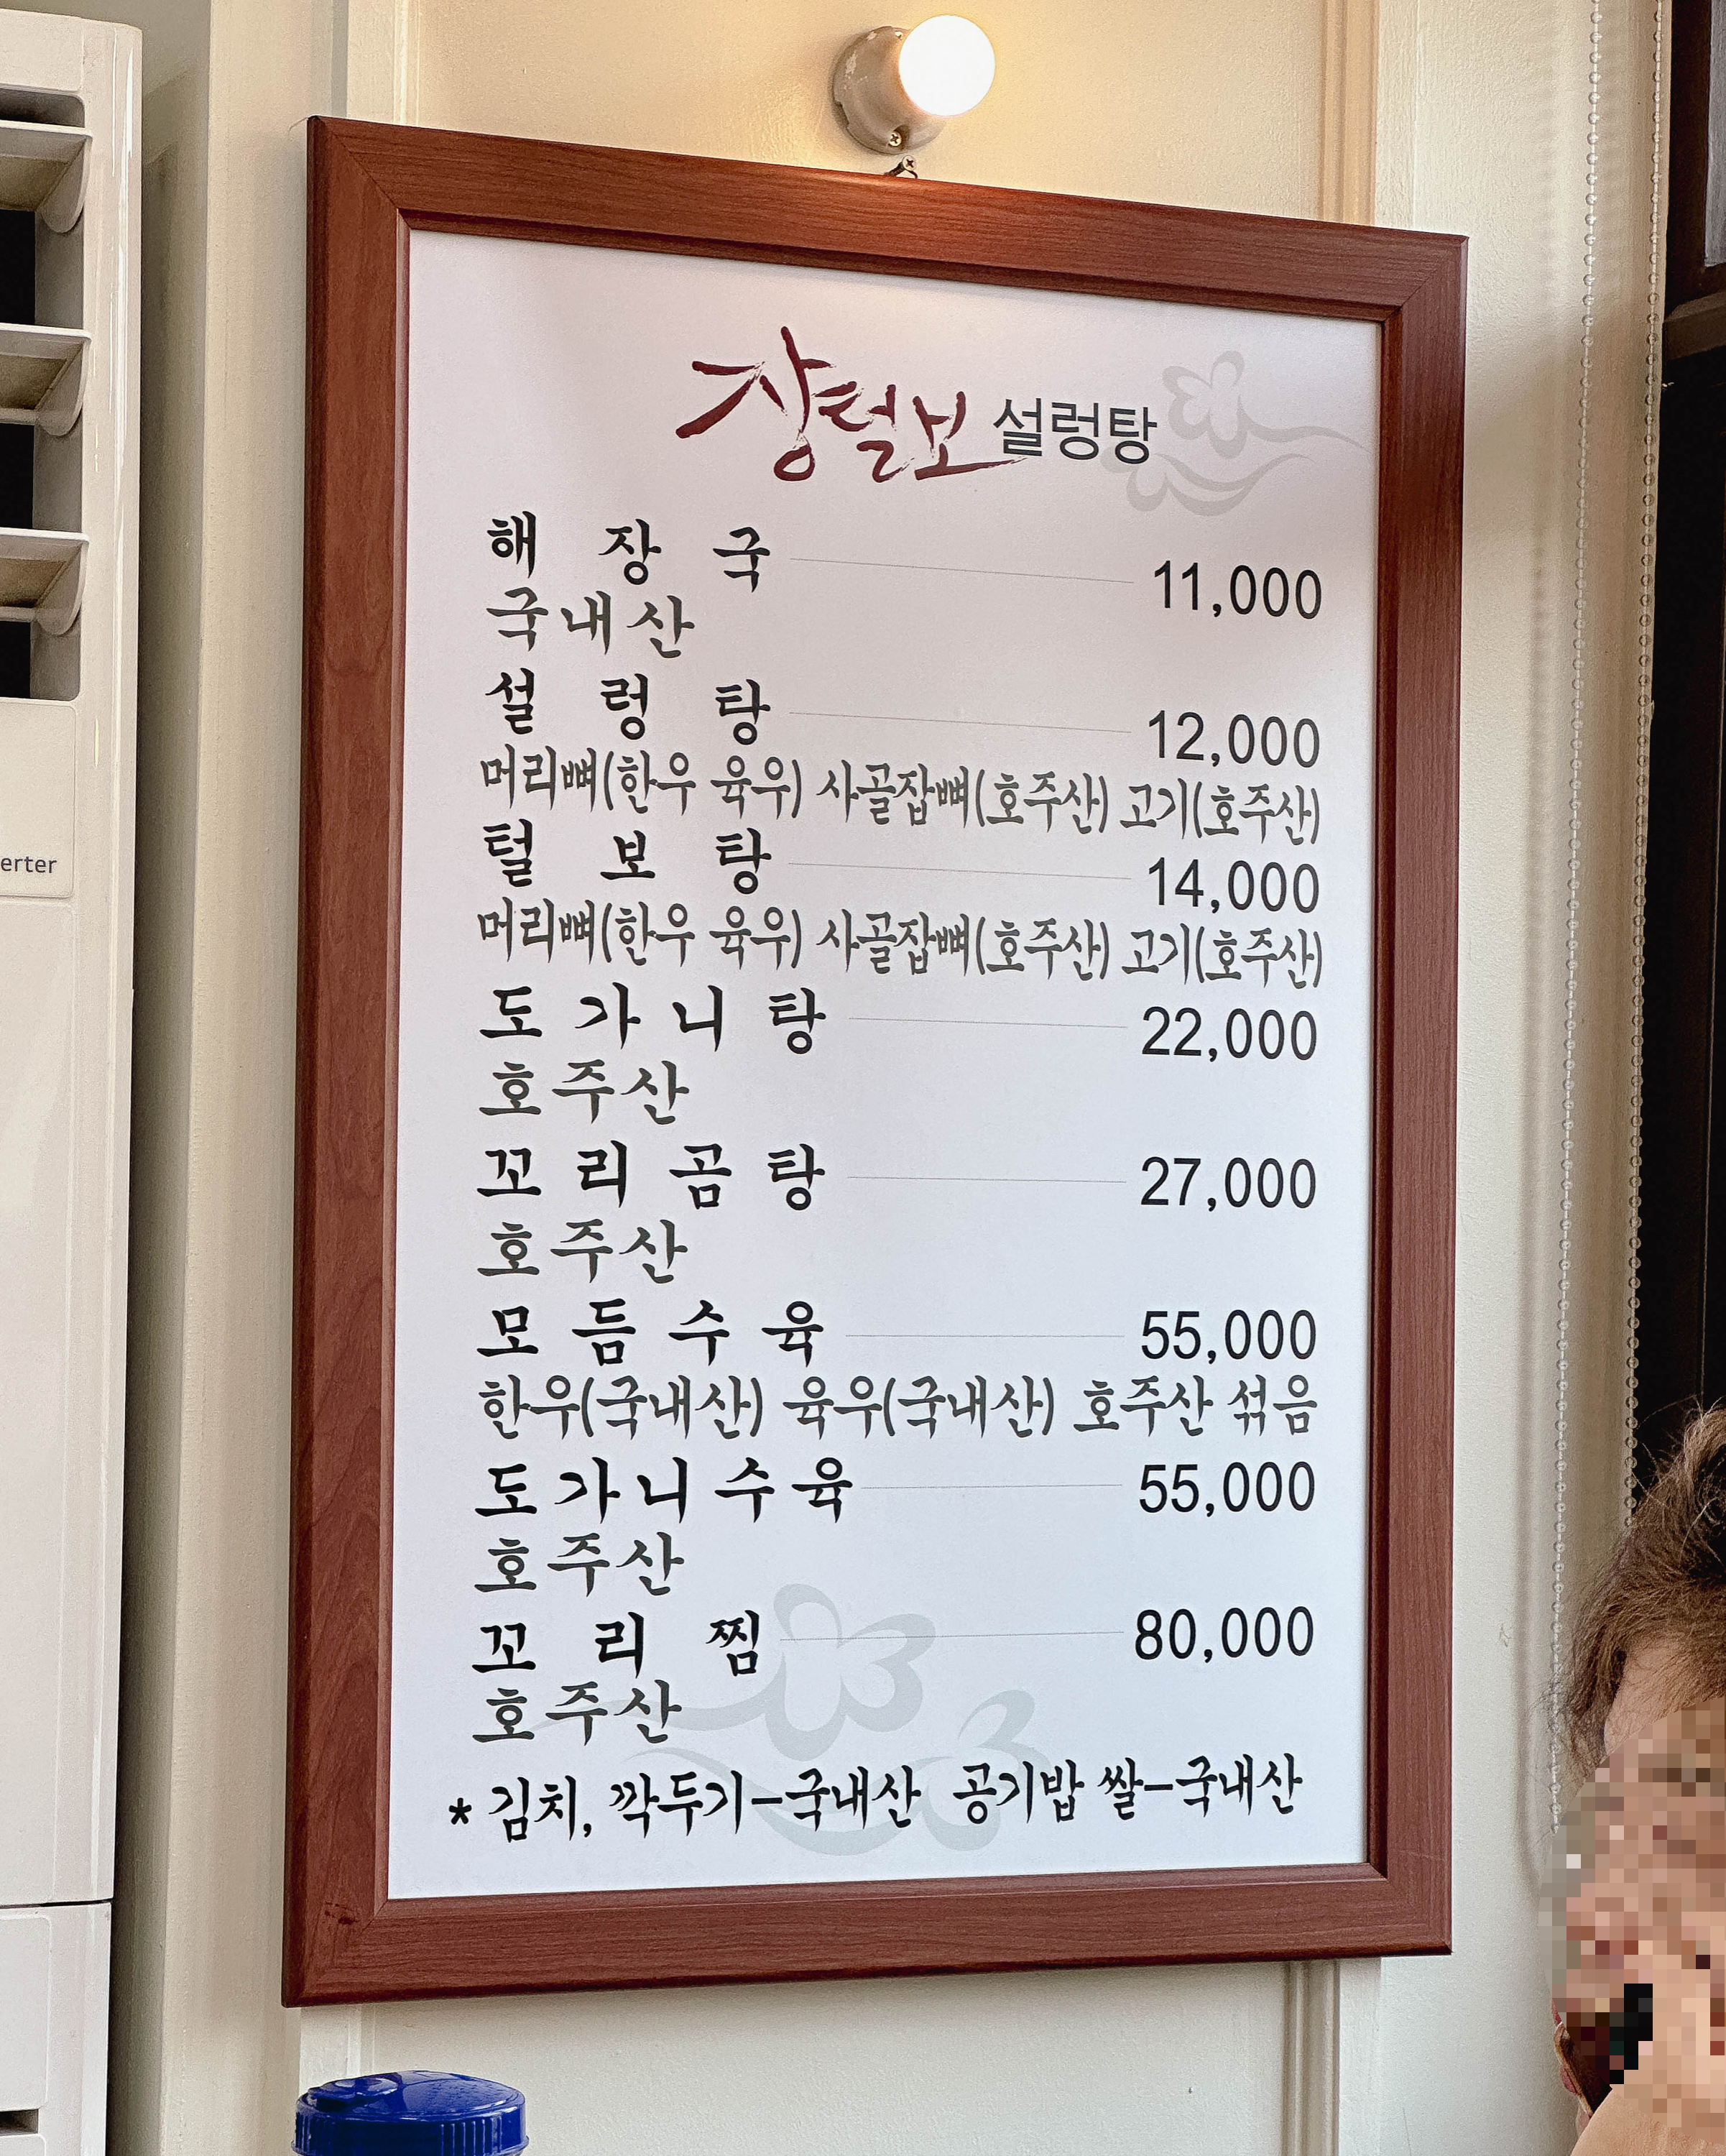 장털보 설렁탕
해 장 국 11,000
국내산
설 렁 탕 12,000
머리뼈(한우 육우) 사골잡뼈(호주산) 고기(호주산)
털 보 탕 14,000
머리뼈(한우 육우) 사골잡뼈(호주산) 고기(호주산)
도 가 니 탕 22,000
호주산
꼬 리 곰 탕 27,000
호주산
모 듬 수 육 55,000
한우(국내산) 육우(국내산) 호주산 섞음
도 가 니 수 육 55,000
호주산
꼬 리 찜 80,000
호주산
* 김치, 깍두기-국내산 공기밥 쌀-국내산
erter